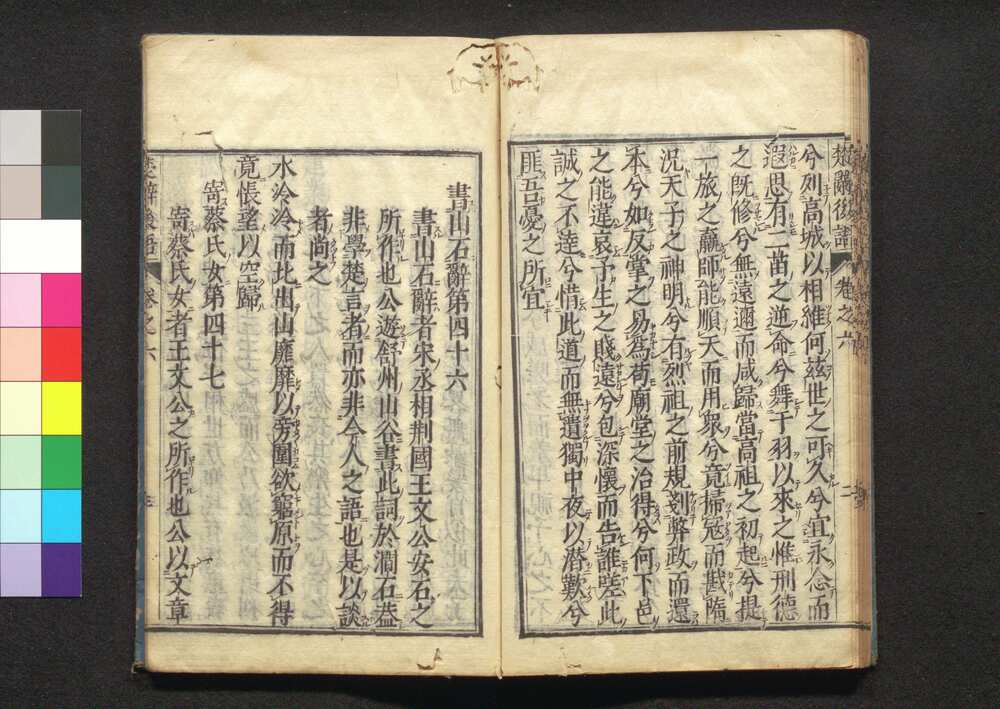 楚辭後語 卷之六
兮列高城以相維何茲世之可久兮宜永念而
遐思有二苗之逆命兮舞干羽以來之惟刑德
之既修兮無遠邇而咸歸當高祖之初起兮提
一旅之羸師能順天而用衆兮竟掃寇而戡隋
況天子之神明兮有烈祖之前規剗弊政而還
本兮如反掌之易為苟廟堂之治得兮何下邑
之能違哀予生之賤遠兮包深懷而告誰嗟此
誠之不達兮惜此道而無遺獨中夜以潛歎兮
匪吾憂之所宜
書山石辭第四十六
書山石辭者宋丞相荆國王文公安石之
所作也公遊舒州山谷書此詞於澗石葢
非學楚言者而亦非今人之語也是以談
者尚之
水泠泠而北出山靡靡以旁圍欲窮原而不得
竟悵望以空歸
寄蔡氏女第四十七
寄蔡氏女者王文公之所作也公以文章
楚辭後語 卷之六